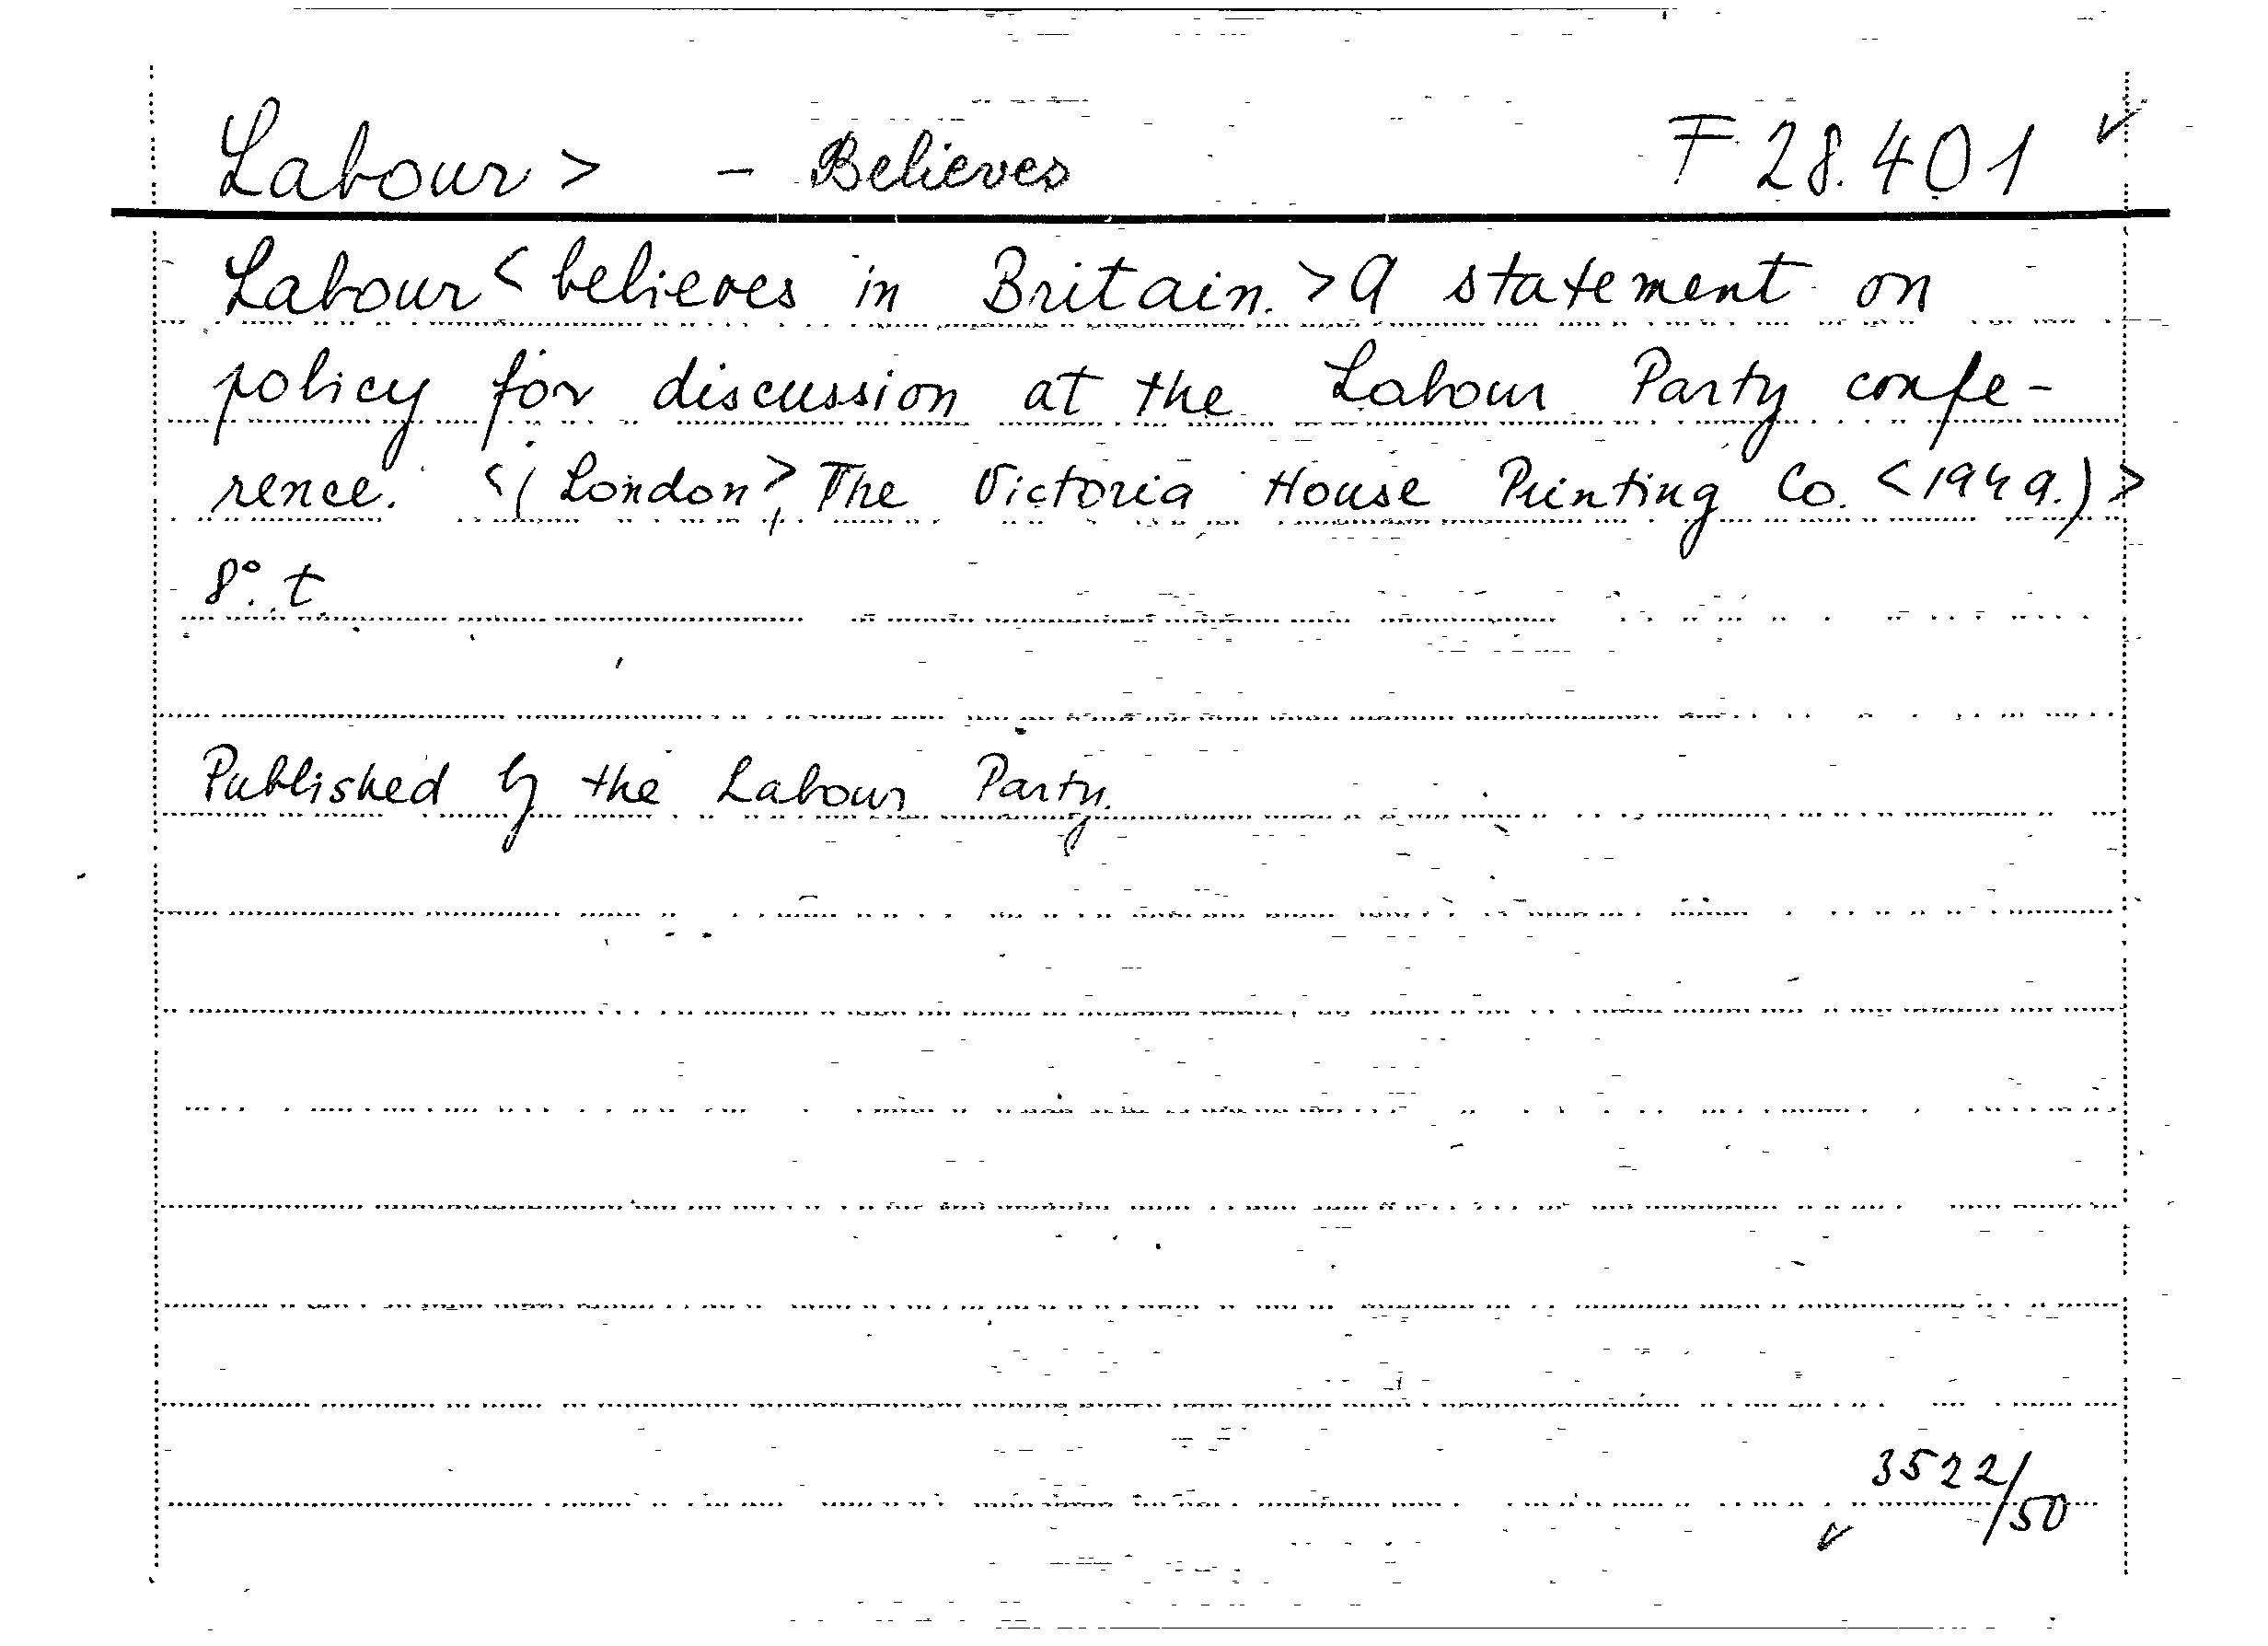 Labour > - Believes F 28.401 ✓
Labour < believes in Britain. > A statement on
policy for discussion at the Labour Party confe-
rence. < (London >, The Victoria House Printing Co. < 1949.) >
8°. t.
Published by the Labour Party.
3522/50
✓